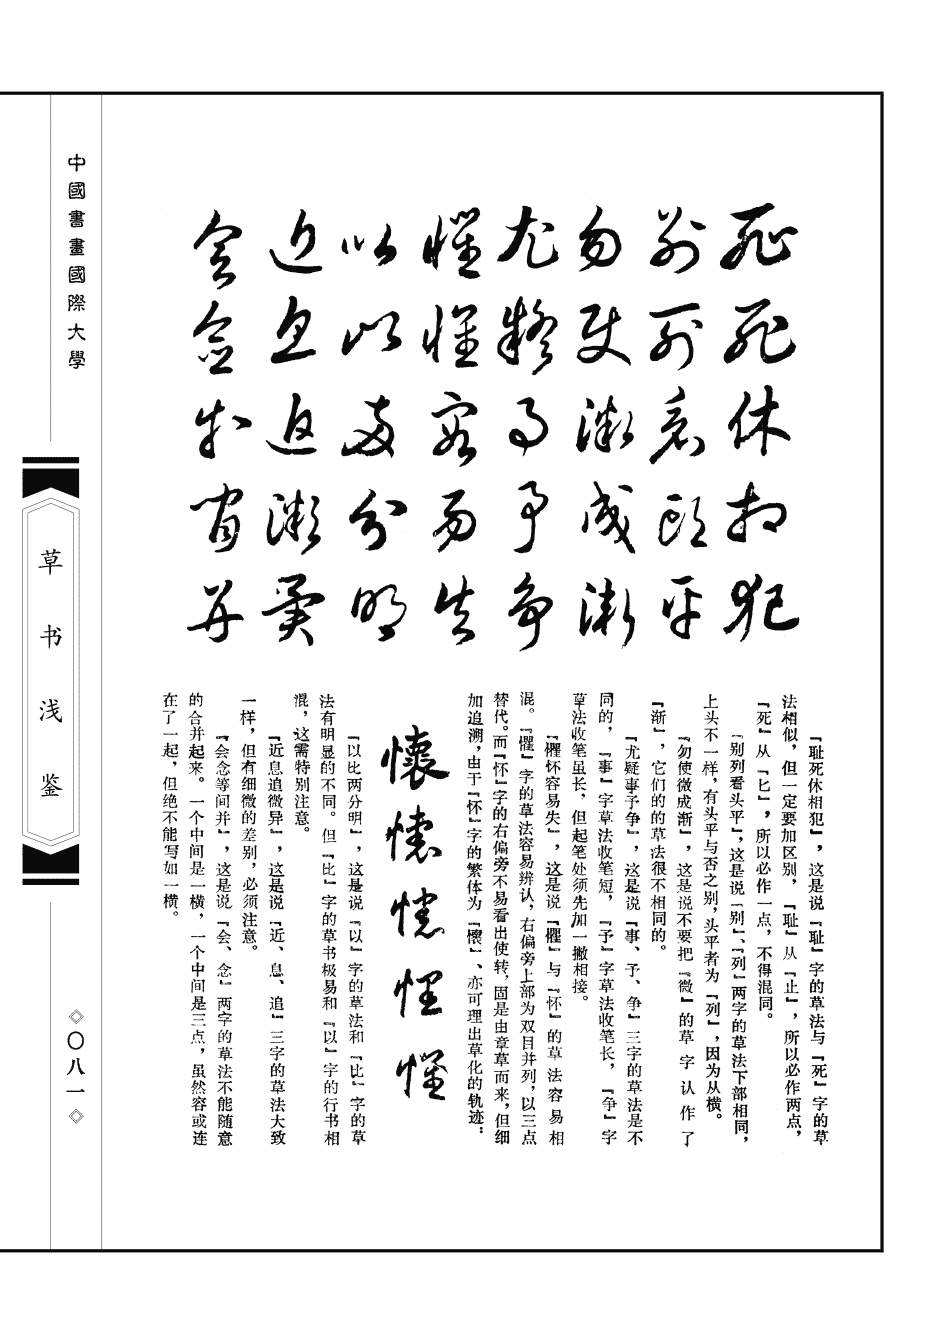 耻死休相犯
别列看头平
勿使微成渐
尤疑事予争
懼怀容易失
以比两分明
近息追微异
会念等间并
『耻死休相犯』，这是说『耻』字的草法与『死』字的草
法相似，但一定要加区别，『耻』从『止』，所以必作两点，
『死』从『匕』，所以必作一点，不得混同。
『别列看头平』，这是说『别』、『列』两字的草法下部相同，
上头不一样，有头平与否之别，头平者为『列』，因为从横。
『勿使微成渐』，这是说不要把『微』的草字认作了
『渐』，它们的的草法很不相同的。
『尤疑事予争』，这是说『事、予、争』三字的草法是不
同的，『事』字草法收笔短，『予』字草法收笔长，『争』字
草法收笔虽长，但起笔处须先加一撇相接。
『懼怀容易失』，这是说『懼』与『怀』的草法容易相
混。『懼』字的草法容易辨认，右偏旁上部为双目并列，以三点
替代。而『怀』字的右偏旁不易看出使转，固是由章草而来，但细
加追溯，由于『怀』字的繁体为『懷』、亦可理出草化的轨迹：
懷
『以比两分明』，这是说『以』字的草法和『比』字的草
法有明显的不同。但『比』字的草书极易和『以』字的行书相
混，这需特别注意。
『近息追微异』，这是说『近、息、追』三字的草法大致
一样，但有细微的差别，必须注意。
『会念等间并』，这是说『会、念』两字的草法不能随意
的合并起来。一个中间是一横，一个中间是三点，虽然容或连
在了一起，但绝不能写如一横。
中國書畫國際大學
草书浅鉴
〇八一